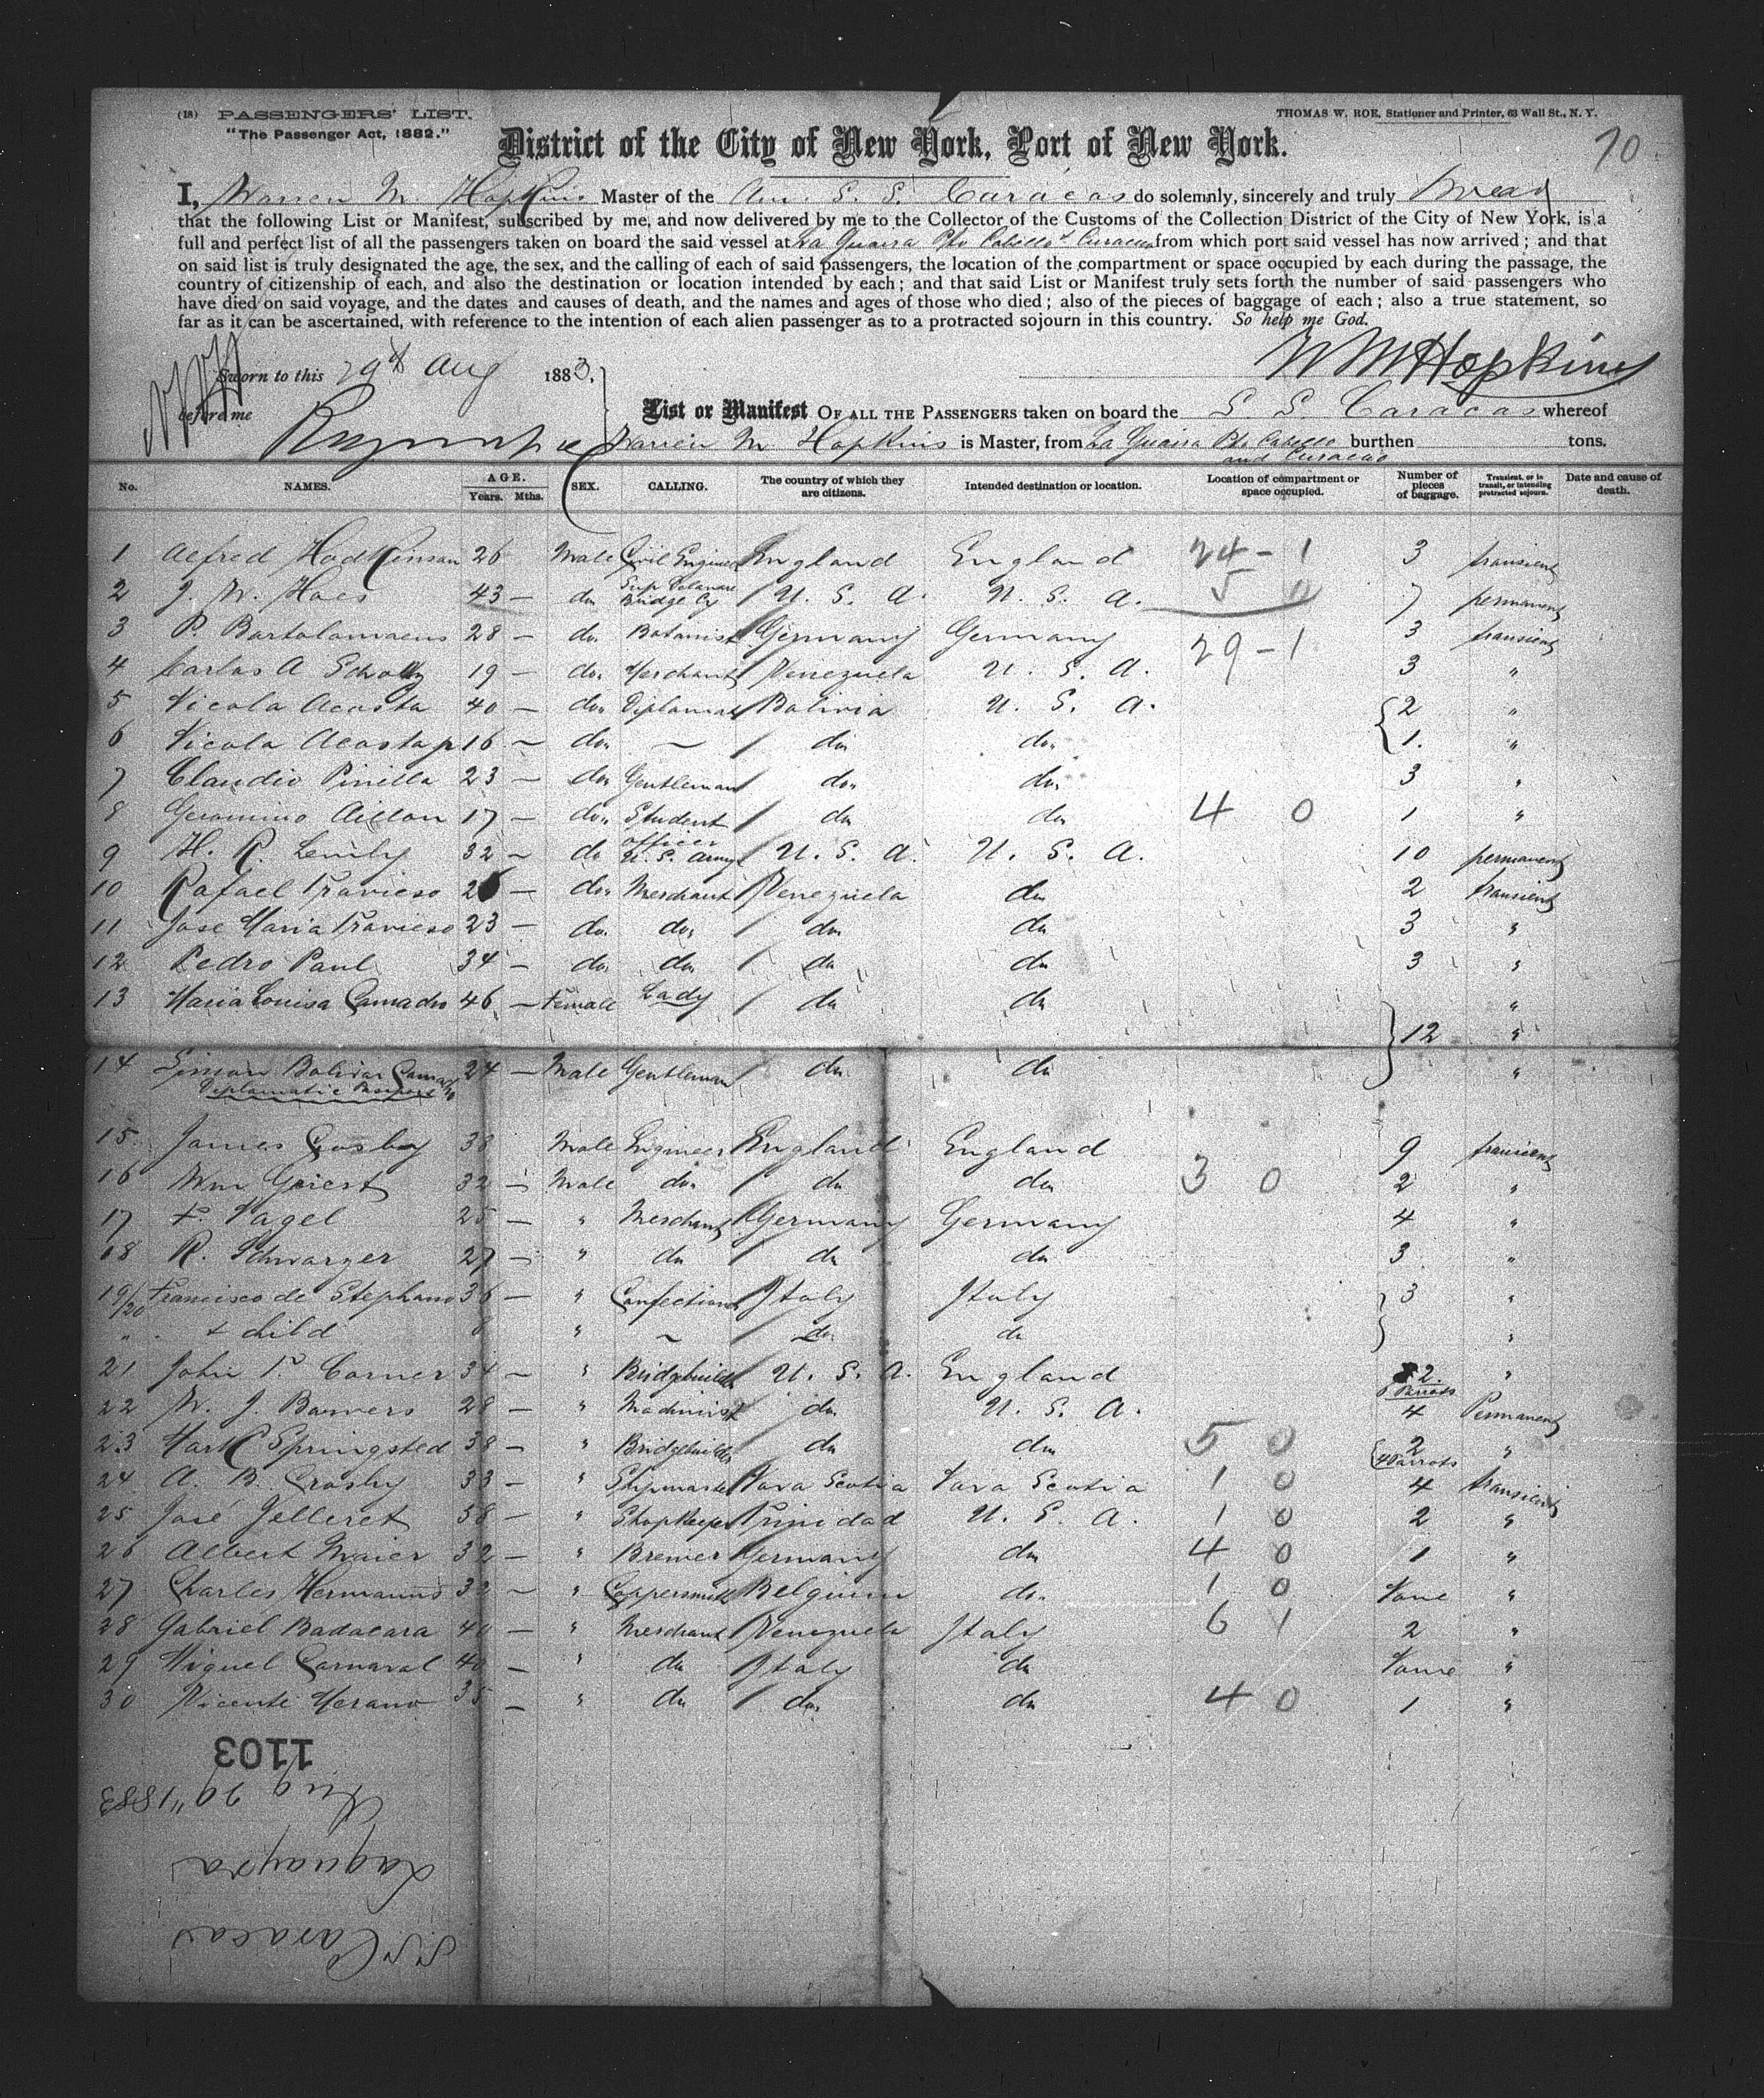 (18) PASSENGERS' LIST.
"The Passenger Act, 1882."
THOMAS W. ROE, Stationer and Printer, 63 Wall St., N. Y.
District of the City of New York, Port of New York.
I, Warren M. Hopkins Master of the Am. S. S. Caracas do solemnly, sincerely and truly swear
that the following List or Manifest, subscribed by me, and now delivered by me to the Collector of the Customs of the Collection District of the City of New York, is a
full and perfect list of all the passengers taken on board the said vessel at La Guaira Pto Cabello & Curacao from which port said vessel has now arrived; and that
on said list is truly designated the age, the sex, and the calling of each of said passengers, the location of the compartment or space occupied by each during the passage, the
country of citizenship of each, and also the destination or location intended by each; and that said List or Manifest truly sets forth the number of said passengers who
have died on said voyage, and the dates and causes of death, and the names and ages of those who died; also of the pieces of baggage of each; also a true statement, so
far as it can be ascertained, with reference to the intention of each alien passenger as to a protracted sojourn in this country. So help me God.
W M Hopkins
Sworn to this 29th Aug 1883,
before me
List or Manifest OF ALL THE PASSENGERS taken on board the S. S. Caracas whereof
Warren M Hopkins is Master, from La Guaira Pto Cabello and Curacao burthen tons.
No. NAMES. AGE. Years. Mths. SEX. CALLING. The country of which they are citizens. Intended destination or location. Location of compartment or space occupied. Number of pieces of baggage. Transient, or in transit, or intending protracted sojourn. Date and cause of death.
1 Alfred Hodkinson 26 Male Civil Engineer England England 24 - 1 3 transient
2 J. W. Hoes 43 - do Sup Delaware Bridge Co U. S. A. U. S. A. 5 0 7 permanent
3 P. Bartolomaeus 28 - do. Botanist Germany Germany 29 - 1 3 transient
4 Carlos A Scholtz 19 - do. Merchant Venezuela U. S. A. 3 "
5 Nicola Acosta 40 - do. Diplomat Bolivia U. S. A. 2 "
6 Nicola Acosta jr 16 - do. - do. do. 1. "
7 Claudio Pinilla 23 - do. Gentleman do. do. 3 "
8 Geronimo Aillon 17 - do. Student do do 4 0 1 "
9 H. R. Lemly 32 - do officer U. S. Army U. S. A. U. S. A. 10 permanent
10 Rafael Travieso - do. Merchant Venezuela do 2 transient
11 Jose Maria Travieso 23 - do. do. do. do 3 "
12 Pedro Paul 34 - do. do do do 3 "
13 Maria Louisa Camacho 46 - Female Lady do do "
12 "
14 Simon Bolivar Camacho 24 - Male Gentleman do do "
Diplomatic Passport
15 James Crosby 38 Male Engineer England England 9 transient
16 Wm Griest 32 - Male do. do do 3 0 2 "
17 F. Nagel 25 - " Merchant Germany Germany 4 "
18 R. Schwarzer 27 - " do do do 3 "
19/20 Francisco de Stephano 36 - " Confectioner Italy Italy 3 "
" " & child 8 " - do. do "
21 John P. Corner 34 - " Bridgebuilder U. S. A. England 2. "
Parrots
22 W. J. Bowers 28 - " Machinist do U. S. A. 4 Permanent
23 Mark Springsted 38 - " Bridgebuilder do do 5 0 2 "
4 Parrots
24 A. B. Crosby 33 - " Shipmaster Nova Scotia Nova Scotia 1 0 4 transient
25 José Jelleret 58 - " Shopkeeper Trinidad U. S. A. 1 0 2 "
26 Albert Maier 32 - " Brewer Germany do 4 0 1 "
27 Charles Hermanns 32 - " Coppersmith Belgium do. 1 0 None "
28 Gabriel Badacara 40 - " Merchant Venezuela Italy 6 1 2 "
29 Miguel Carnaval 40 - " do Italy do None "
30 Vicente Merano 35 - " do do. do 4 0 1 "
1103
Aug 29" 1883
Laguayra
SS Caracas